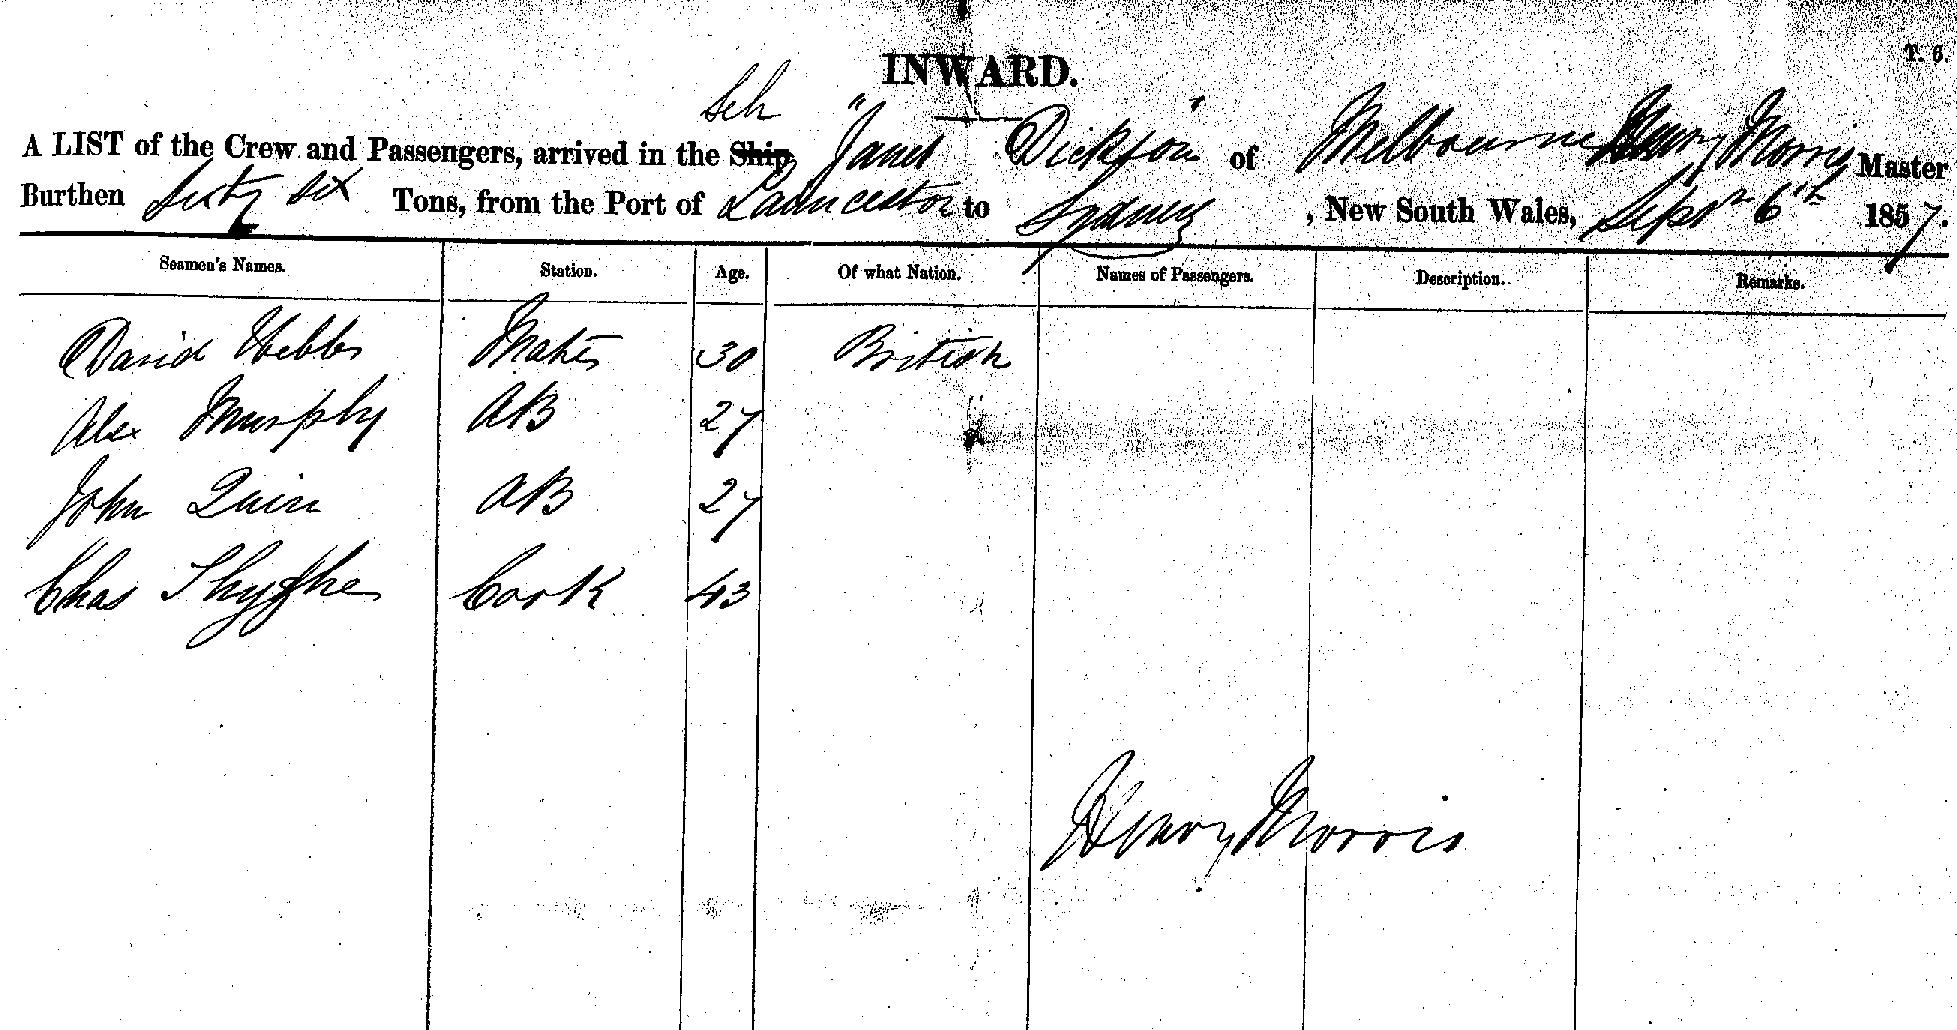 T. 6.
INWARD.
Sch
A LIST of the Crew and Passengers, arrived in the Ship "Janet Dickson" of Melbourne Henry Morris Master
Burthen Sixty Six Tons, from the Port of Launceston to Sydney, New South Wales, Sepr 6th 1857.
Seamen's Names. Station. Age. Of what Nation. Names of Passengers. Description. Remarks.
David Hebbs Mate 30 British
Alex Murphy AB 27
John Quin AB 27
Chas Cook 43
Henry Morris